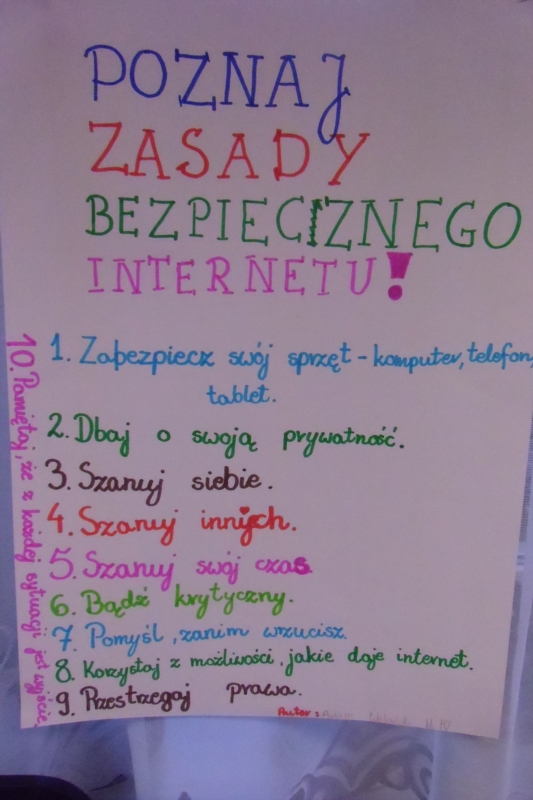 POZNAJ
ZASADY
BEZPIECZNEGO
INTERNETU!
1. Zabezpiecz swój sprzęt - komputer, telefon,
tablet.
2. Dbaj o swoją prywatność.
3. Szanuj siebie.
4. Szanuj innych.
5. Szanuj swój czas
6. Bądź krytyczny.
7. Pomyśl, zanim wrzucisz.
8. Korzystaj z możliwości, jakie daje internet.
9. Przestrzegaj prawa.
10. Pamiętaj, że z każdej sytuacji jest wyjście.
Autor: